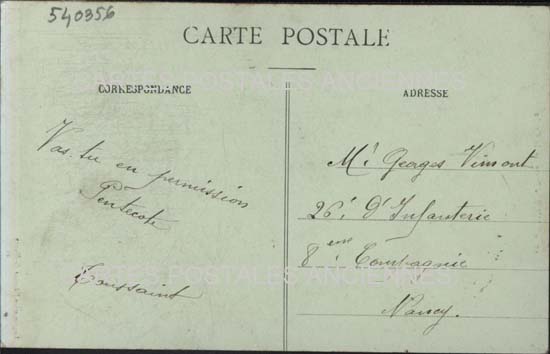 540356
CARTE POSTALE
CARTES POSTALES ANCIENNES
CORRESPONDANCE
Vas-tu en permission
Pentecote
Toussaint
ADRESSE
Mr Georges Vimont
26e D'Infanterie
8eme Compagnie
CARTES POSTALES ANCIENNES
Nancy.